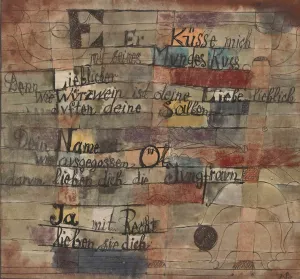 E Er Küsse mich
mit seines Mundes Kuss
Denn Lieblicher
wie Würzwein ist deine Liebe lieblich
duften deine Salben
Dein Name ist
wie ausgegossen Öl
darum lieben dich die Jungfraun
Ja mit Recht
lieben sie dich